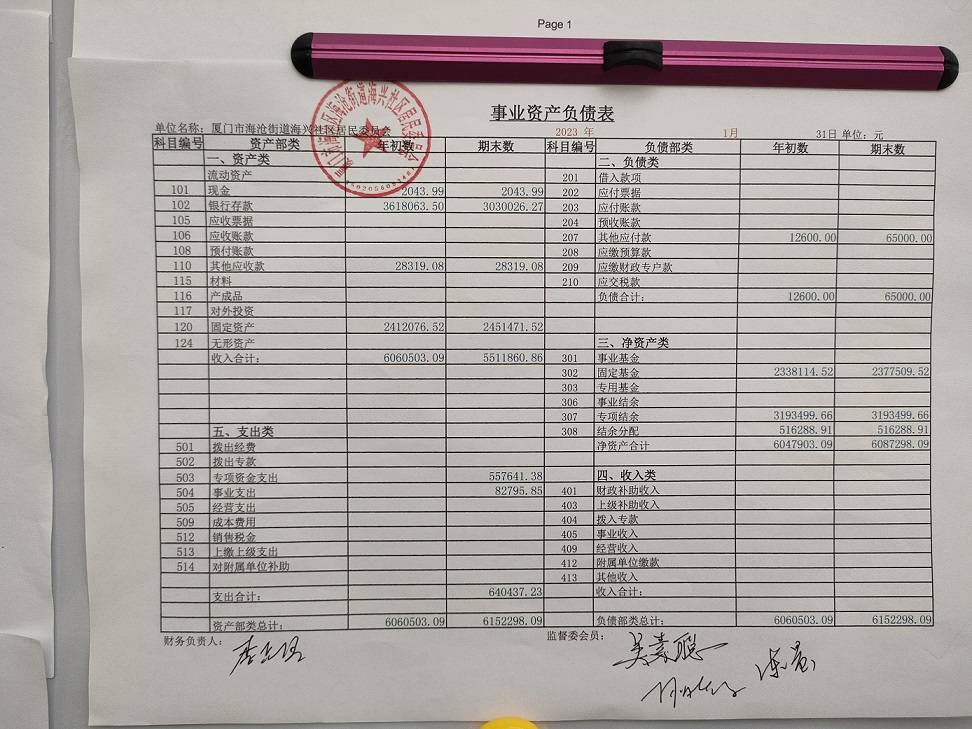 Page 1
事业资产负债表
单位名称：厦门市海沧街道海兴社区居民委员会 2023 年 1月 31日 单位：元
科目编号 资产部类 年初数 期末数 科目编号 负债部类 年初数 期末数
一、资产类 二、负债类
流动资产 201 借入款项
101 现金 2043.99 2043.99 202 应付票据
102 银行存款 3618063.50 3030026.27 203 应付账款
105 应收票据 204 预收账款
106 应收账款 207 其他应付款 12600.00 65000.00
108 预付账款 208 应缴预算款
110 其他应收款 28319.08 28319.08 209 应缴财政专户款
115 材料 210 应交税款
116 产成品 负债合计： 12600.00 65000.00
117 对外投资
120 固定资产 2412076.52 2451471.52
124 无形资产 三、净资产类
收入合计： 6060503.09 5511860.86 301 事业基金
302 固定基金 2338114.52 2377509.52
303 专用基金
306 事业结余
307 专项结余 3193499.66 3193499.66
五、支出类 308 结余分配 516288.91 516288.91
501 拨出经费 净资产合计 6047903.09 6087298.09
502 拨出专款
503 专项资金支出 557641.38 四、收入类
504 事业支出 82795.85 401 财政补助收入
505 经营支出 403 上级补助收入
509 成本费用 404 拨入专款
512 销售税金 405 事业收入
513 上缴上级支出 409 经营收入
514 对附属单位补助 412 附属单位缴款
413 其他收入
支出合计： 640437.23 收入合计：
资产部类总计： 6060503.09 6152298.09 负债部类总计： 6060503.09 6152298.09
财务负责人： 监督委会员：